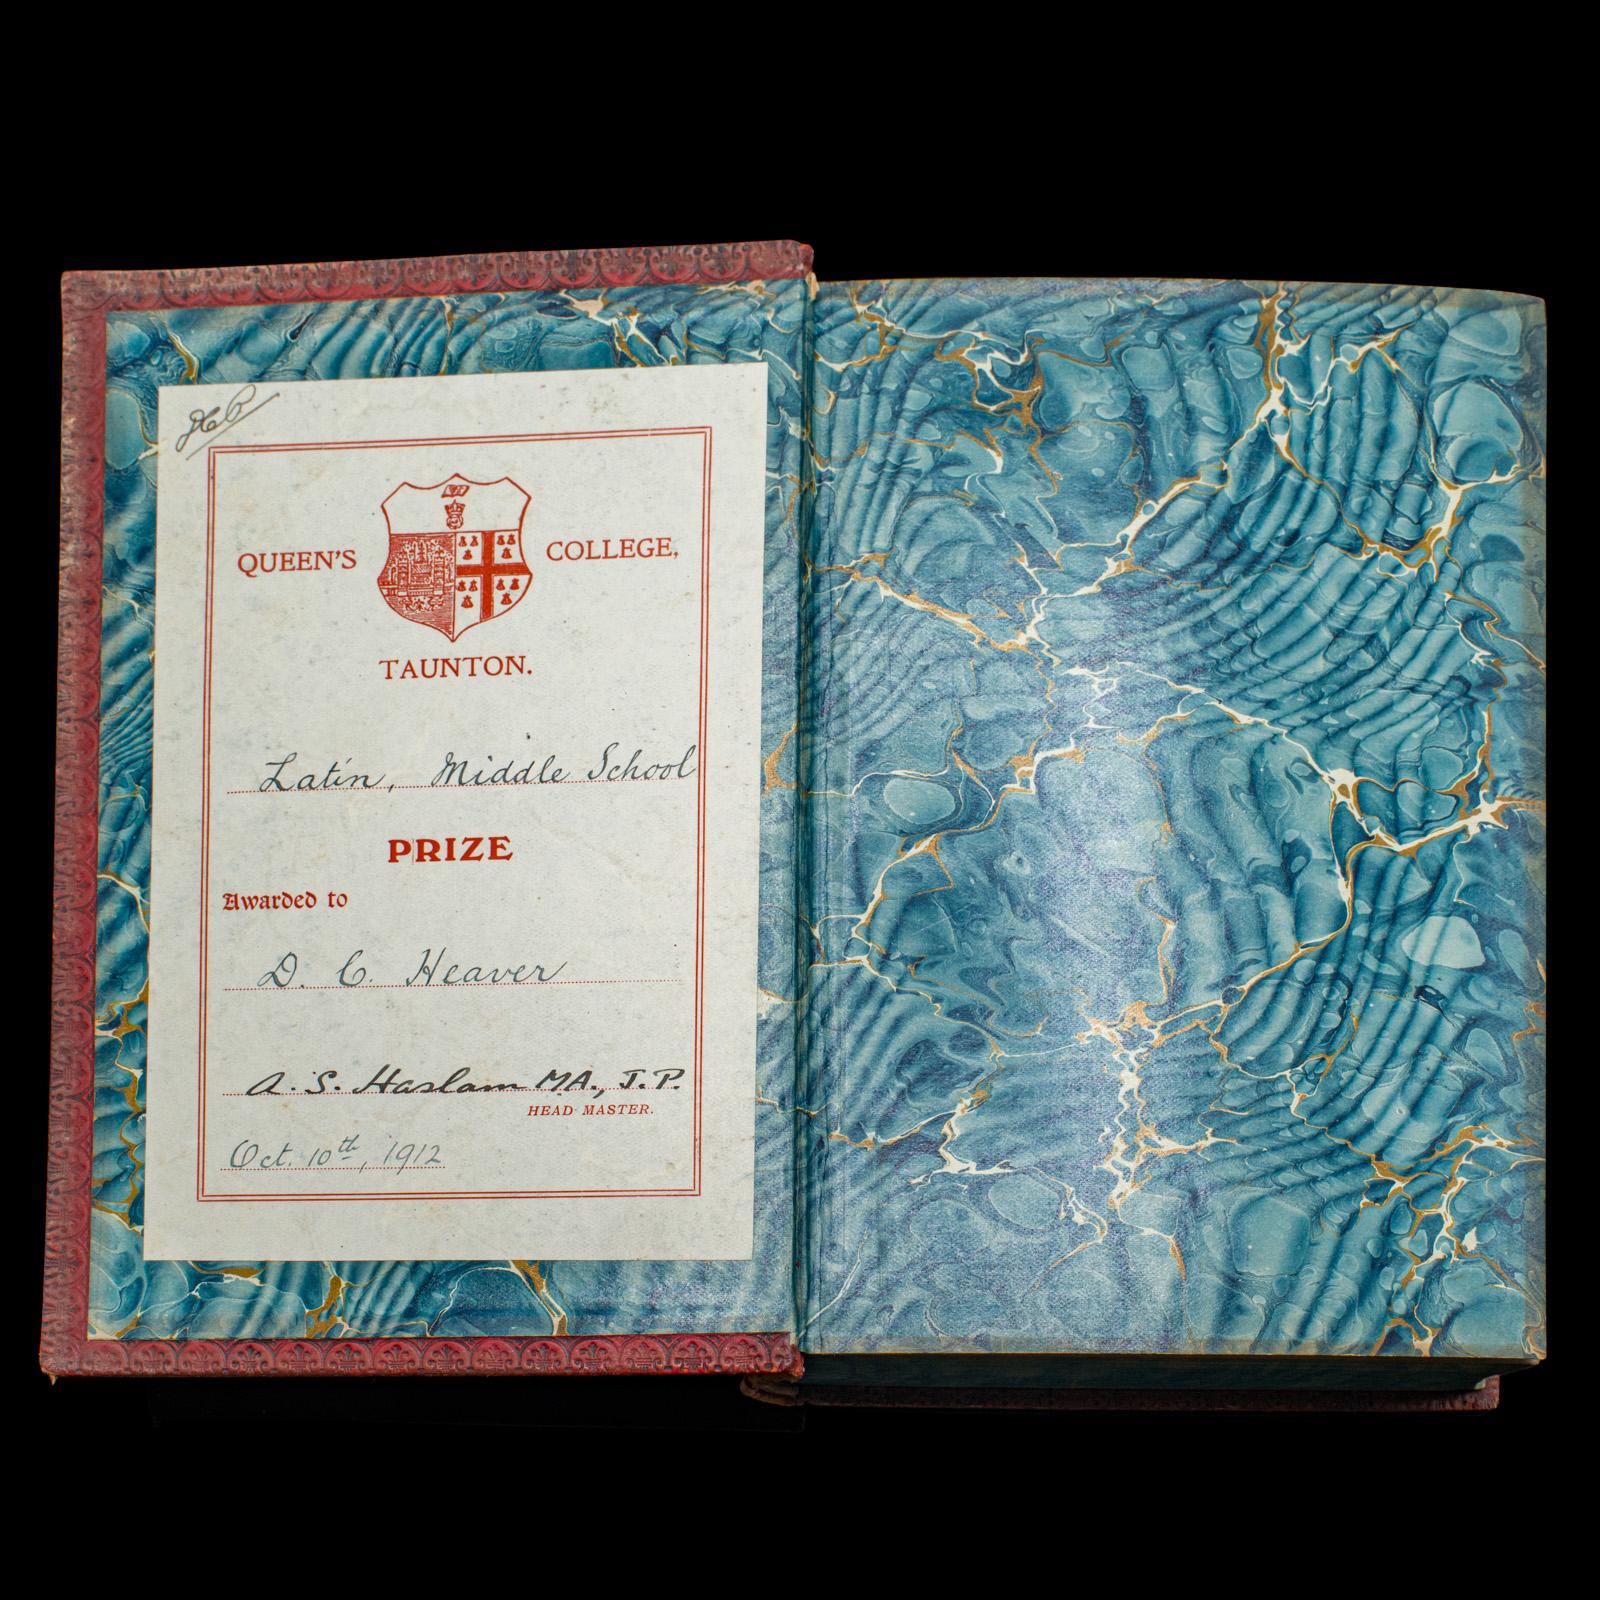 QUEEN'S COLLEGE,
TAUNTON.
Latin, Middle School
PRIZE
Awarded to
D. C. Heaver
A. S. Haslam MA., J.P.
HEAD MASTER.
Oct. 10th, 1912